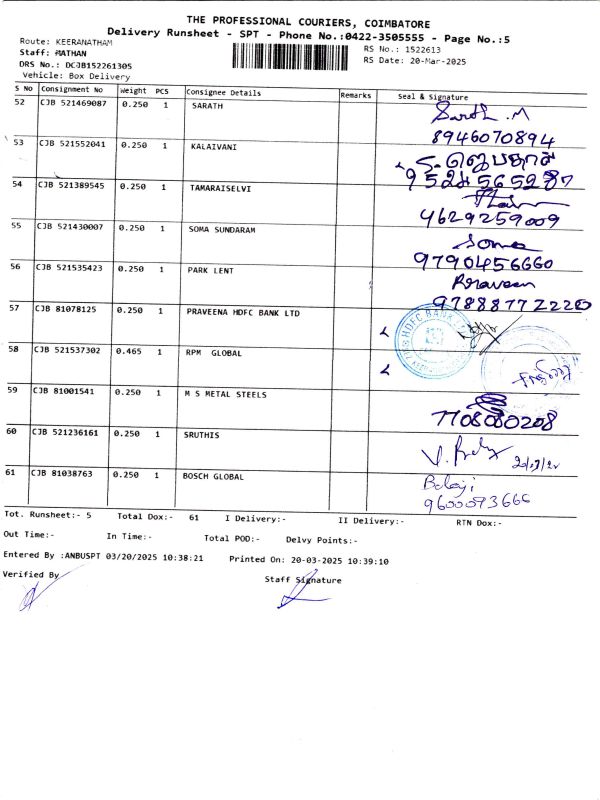 THE PROFESSIONAL COURIERS, COIMBATORE
Delivery Runsheet - SPT - Phone No.:0422-3505555 - Page No.:5
Route: KEERANATHAM
RS No.: 1522613
Staff: MATHAN
RS Date: 20-Mar-2025
DRS No.: DCJB152261305
Vehicle: Box Delivery
S No Consignment No Weight PCS Consignee Details Remarks Seal & Signature
52 CJB 521469087 0.250 1 SARATH Sarath.M
8946070894
53 CJB 521552041 0.250 1 KALAIVANI
54 CJB 521389545 0.250 1 TAMARAISELVI
4629259009
55 CJB 521430007 0.250 1 SOMA SUNDARAM Soma
9790456660
56 CJB 521535423 0.250 1 PARK LENT Praveen
57 CJB 81078125 0.250 1 PRAVEENA HDFC BANK LTD HDFC BANK
58 CJB 521537302 0.465 1 RPM GLOBAL
59 CJB 81001541 0.250 1 M S METAL STEELS
7708080208
60 CJB 521236161 0.250 1 SRUTHIS
61 CJB 81038763 0.250 1 BOSCH GLOBAL Balaji
9600093666
Tot. Runsheet:- 5 Total Dox:- 61 I Delivery:- II Delivery:- RTN Dox:-
Out Time:- In Time:- Total POD:- Delvy Points:-
Entered By :ANBUSPT 03/20/2025 10:38:21 Printed On: 20-03-2025 10:39:10
Verified By
Staff Signature